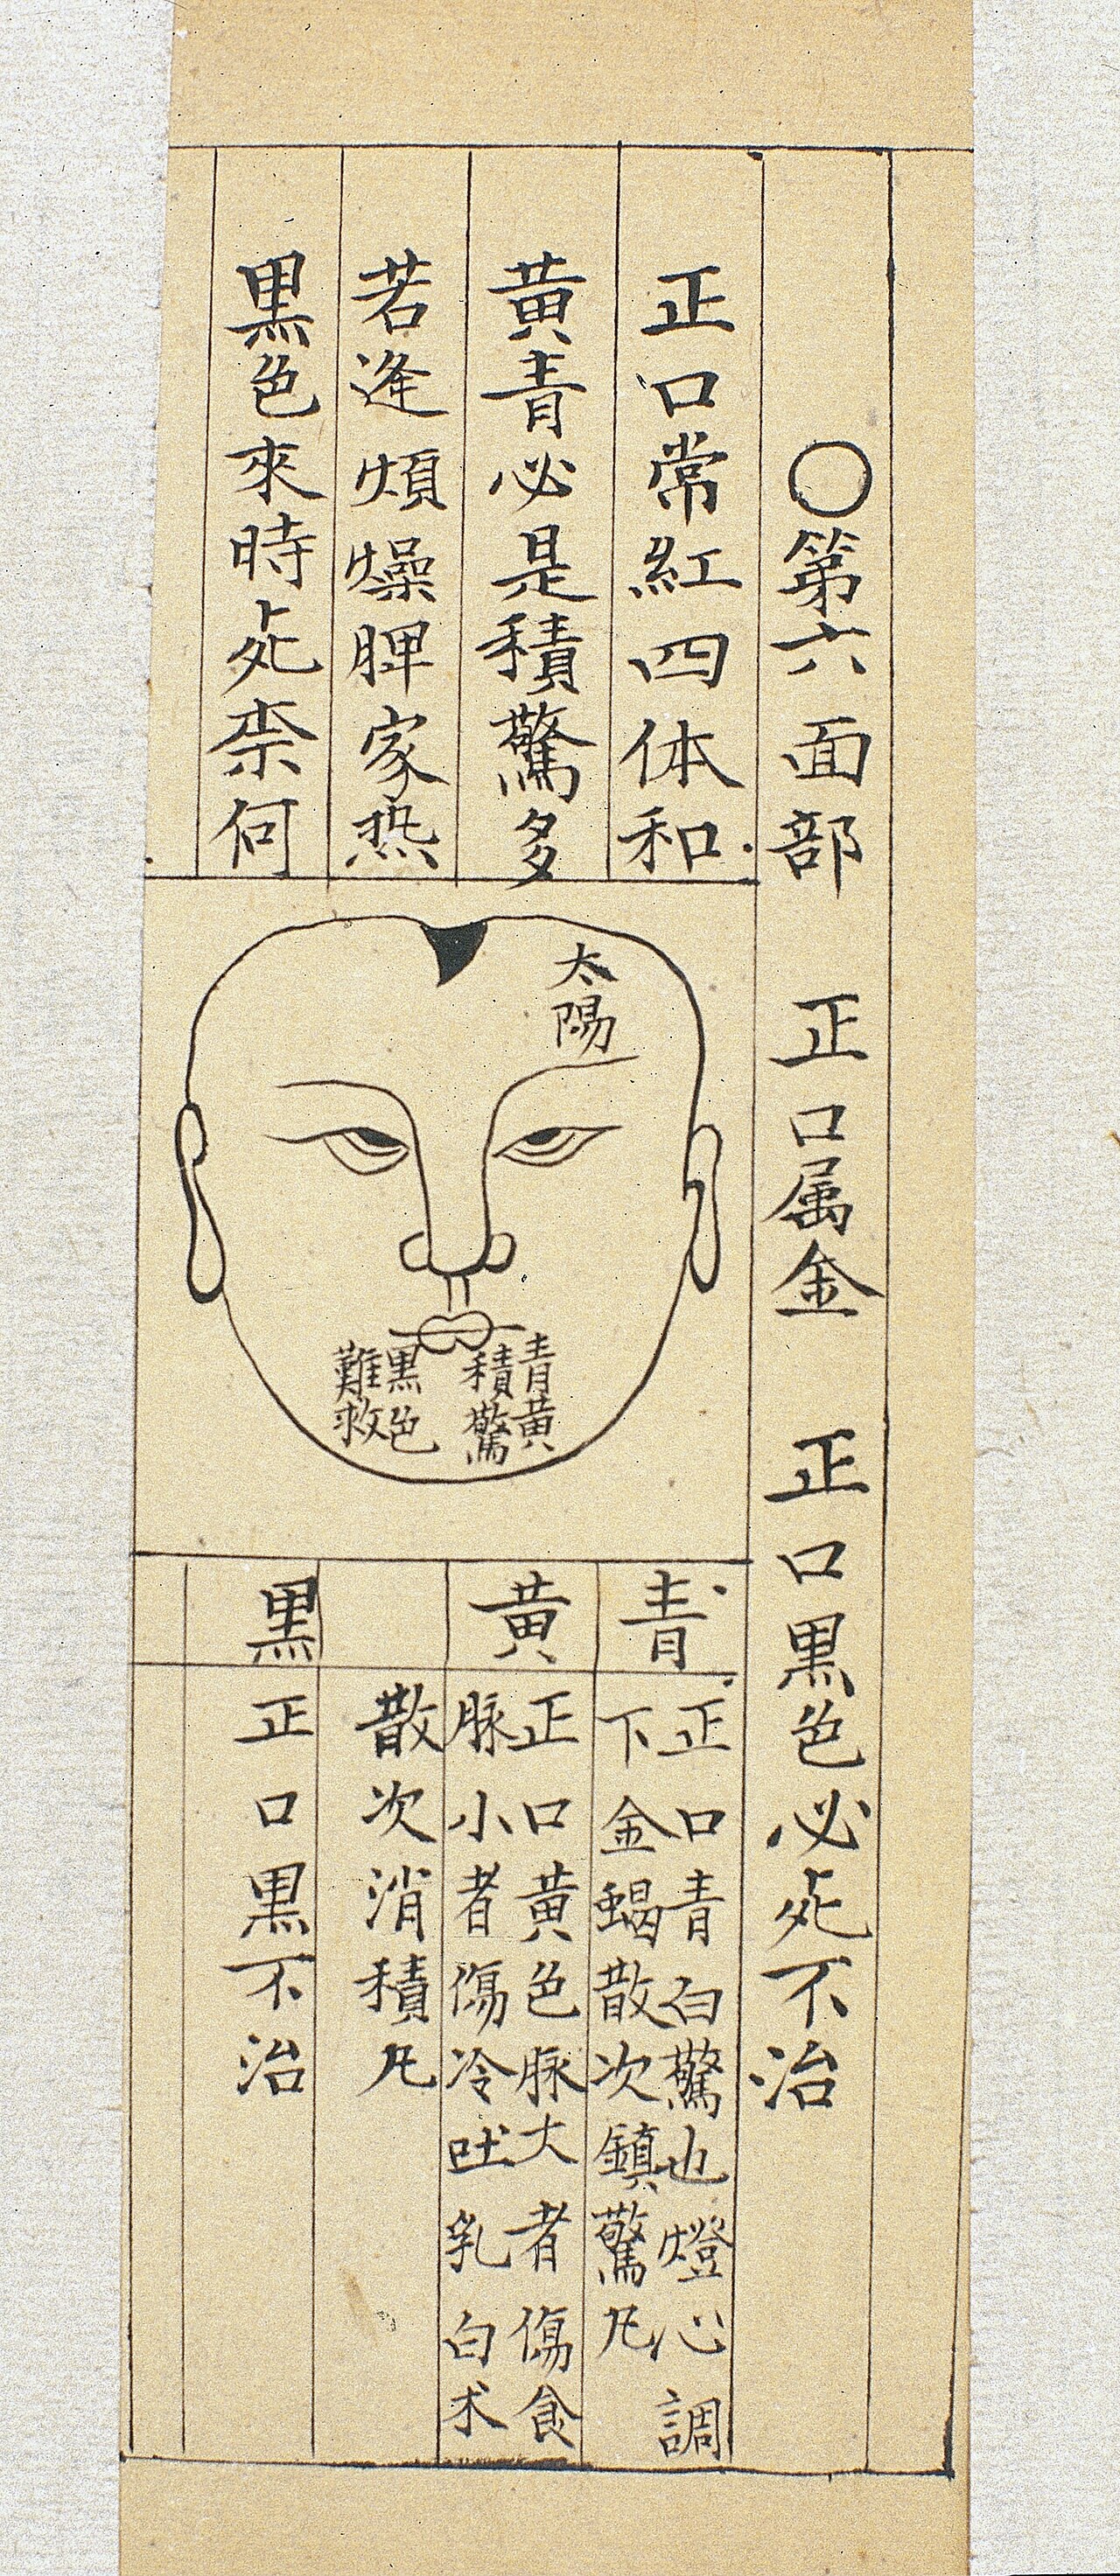 ○第六面部 正口属金 正口黒色必死不治
正口常紅四体和
黄青必是積驚多
若逢煩燥脾家热
黒色來時死柰何
太陽
青黄
積驚
黒色
難救
青
正口青白驚也燈心調
下金蝎散次鎮驚凡
黄
正口黄色脉大者傷食
脉小者傷冷吐乳白术
散次消積凡
黒
正口黒不治